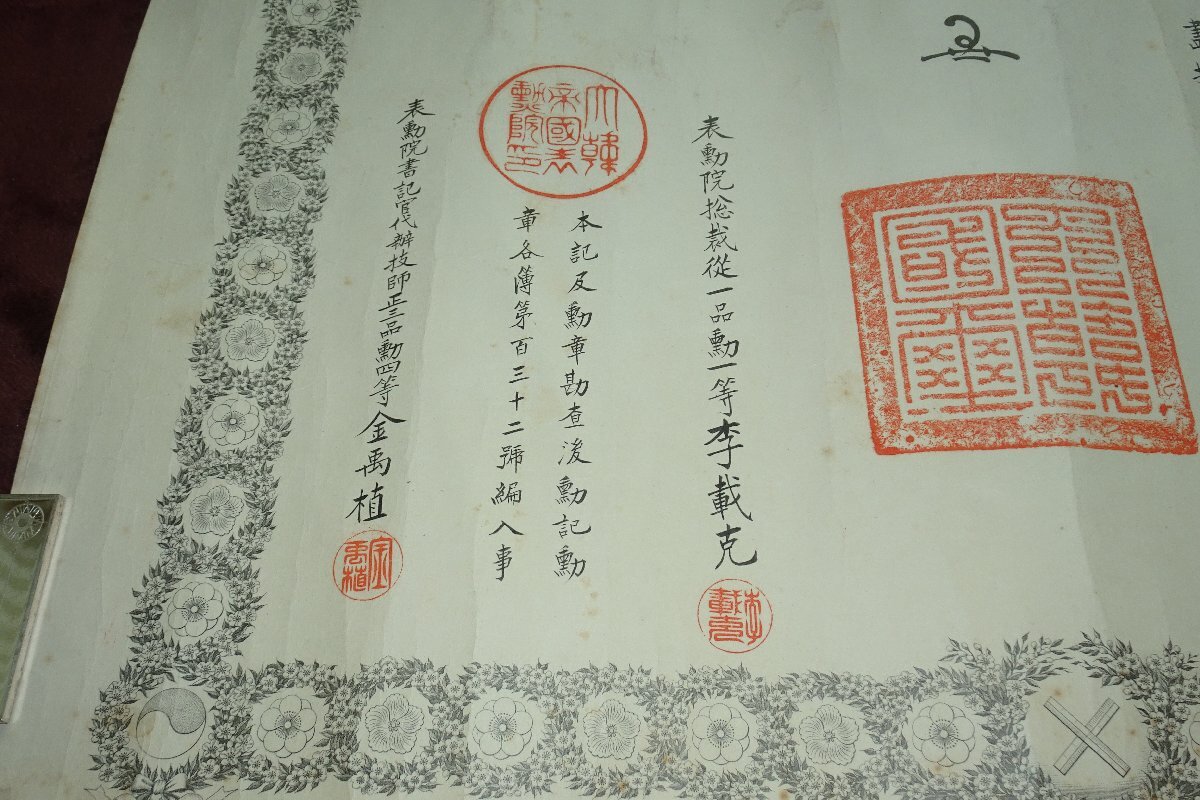 表勳院総裁從一品勳一等李載克
大韓
帝國表
勳院印
本記及勳章勘査後勳記勳
章各簿第百三十二號編入事
表勳院書記官代辦技師正三品勳四等金禹植
李
載克
金
禹植